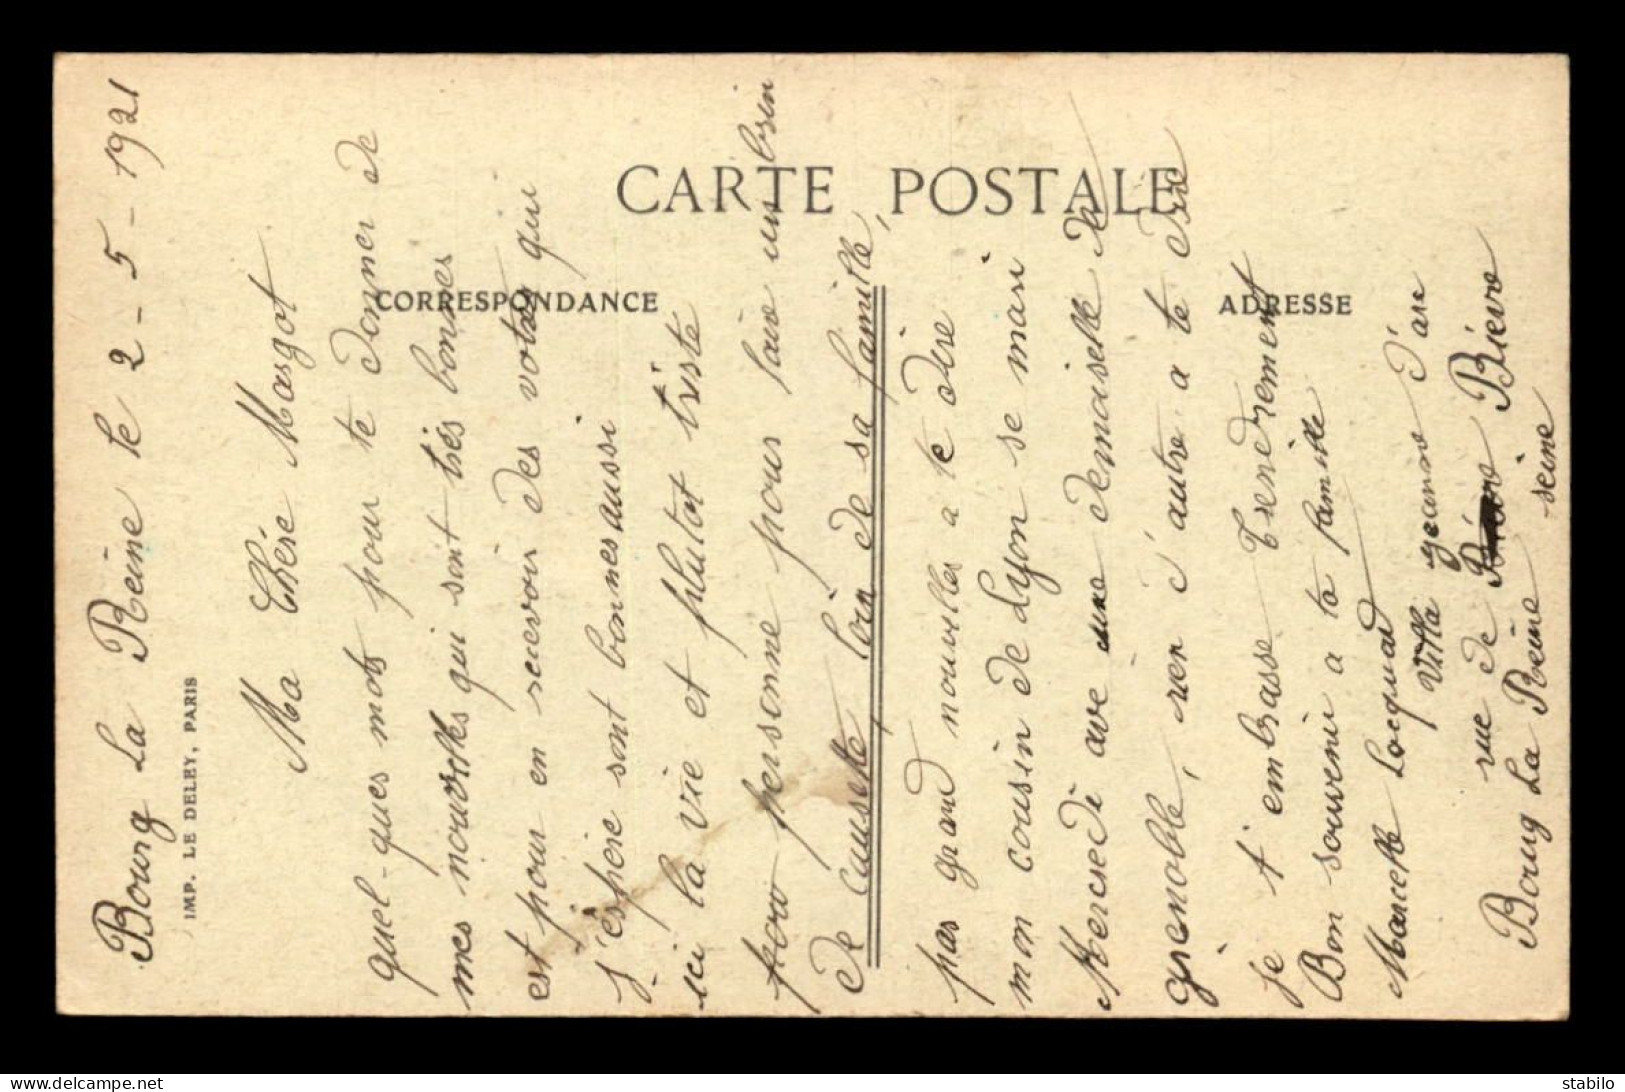 CARTE POSTALE
CORRESPONDANCE
ADRESSE
IMP. LE DELEY, PARIS
Bourg La Reine le 2-5-1921
Ma Chére Margot
quel-ques mots pour te donner de
mes nouvelles qui sont trés bonnes
est pour en recevoir des votres qui
j'éspere sont bonnes aussi
ici la vie et plutot triste
pour personne pour faire un brin
de causette loin de sa famille,
pas grand nouvelles a te dire
mon cousin de Lyon se mari
Mercredi avé une demoiselle de
grenoble, rien d'autre a te dire
Je t'embrasse Tendrement
Bon souvenir a ta famille
Marcelle Locquard
Villa jeanne d'arc
rue de Bièvre
Bourg La Reine
seine
www.delcampe.net
stabilo